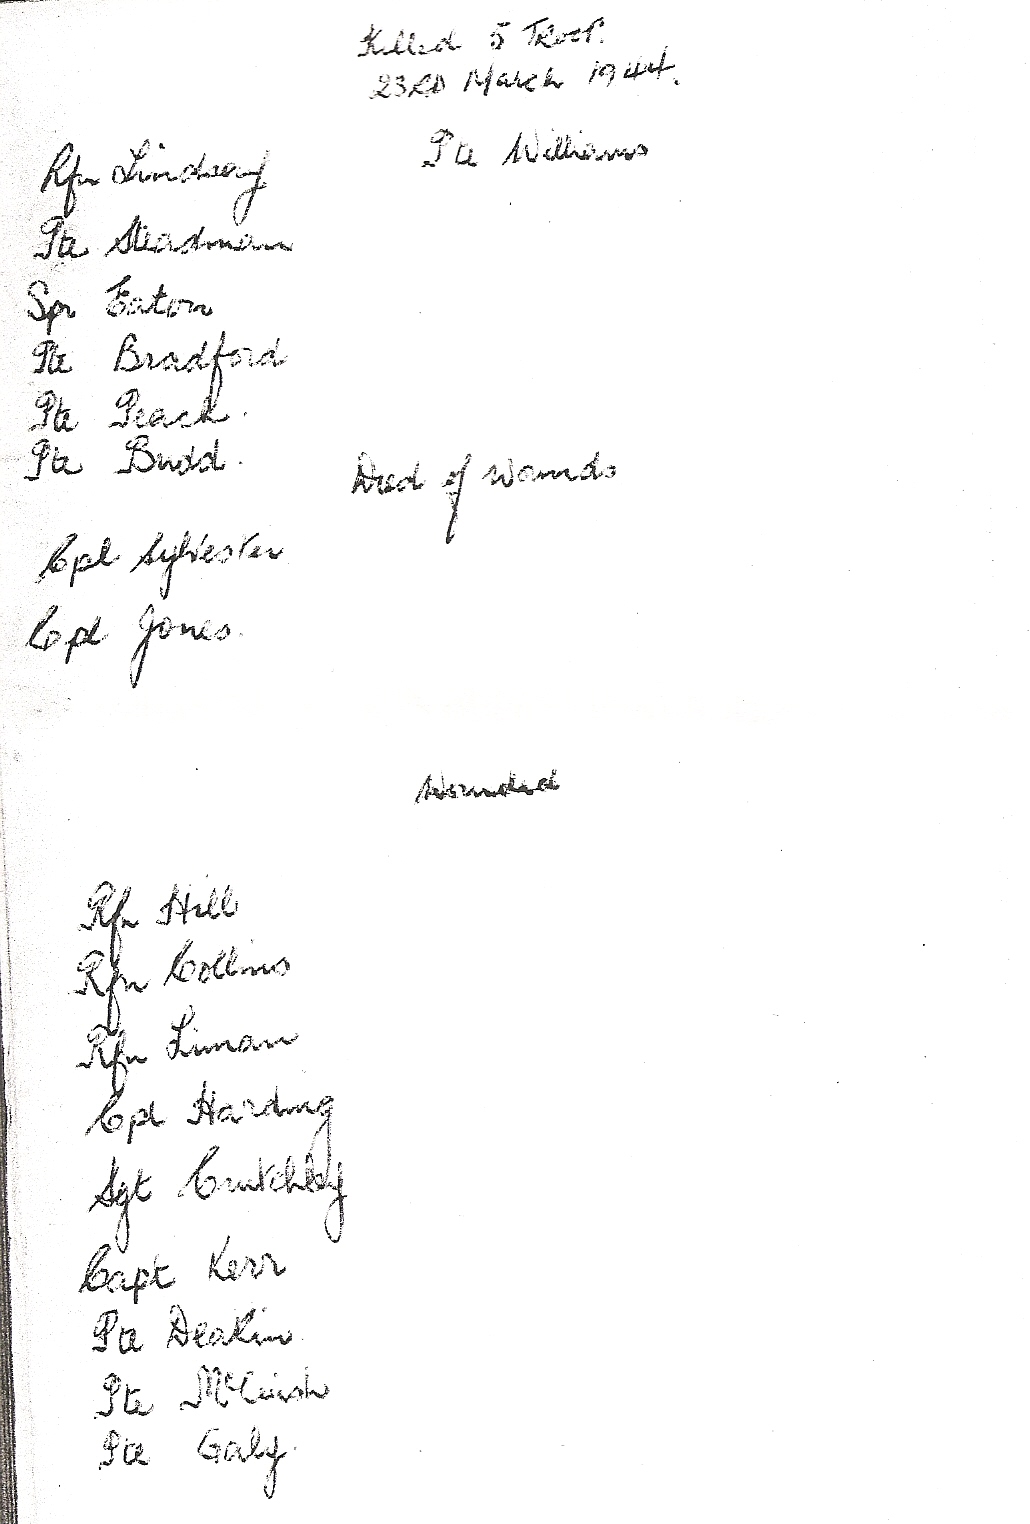 Killed 5 Troop.
23RD March 1944.
Pte Williams
Rfn Lindsay
Pte Steadman
Spr Eaton
Pte Bradford
Pte Peach.
Pte Budd.
Died of wounds
Cpl Sylvester
Cpl Jones.
Wounded
Rfn Hill
Rfn Collins
Rfn Liman
Cpl Harding
Sgt Crutchley
Capt Kerr
Pte Deakin.
Pte
Pte Galy.